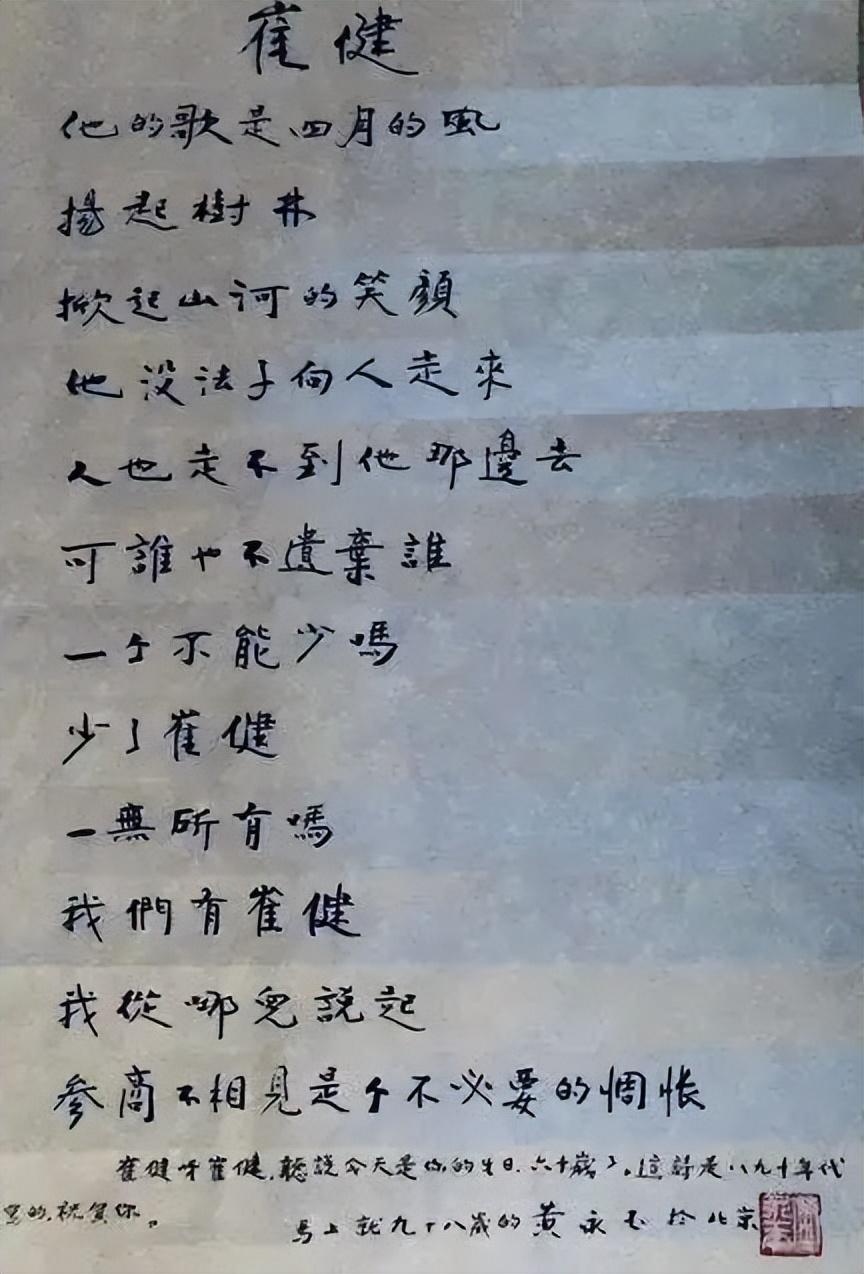 崔健
他的歌是四月的風
揚起樹林
掀起山河的笑顏
他没法子向人走來
人也走不到他那邊去
可誰也不遺棄誰
一个不能少嗎
少了崔健
一無所有嗎
我們有崔健
我從哪兒説起
參商不相見是个不必要的惆悵
崔健呀崔健，聽説今天是你的生日，六十歲了。這詩是八九十年代
寫的，祝賀你。
馬上就九十八歲的黄永玉於北京